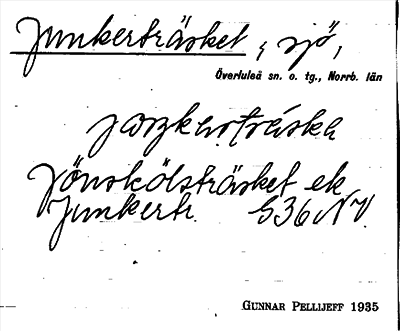 Junkerträsket, sjö,
Överluleå sn. o. tg., Norrb. län
Jönskölsträsket ek
Junkertr. G36NV.
GUNNAR PELLIJEFF 1935